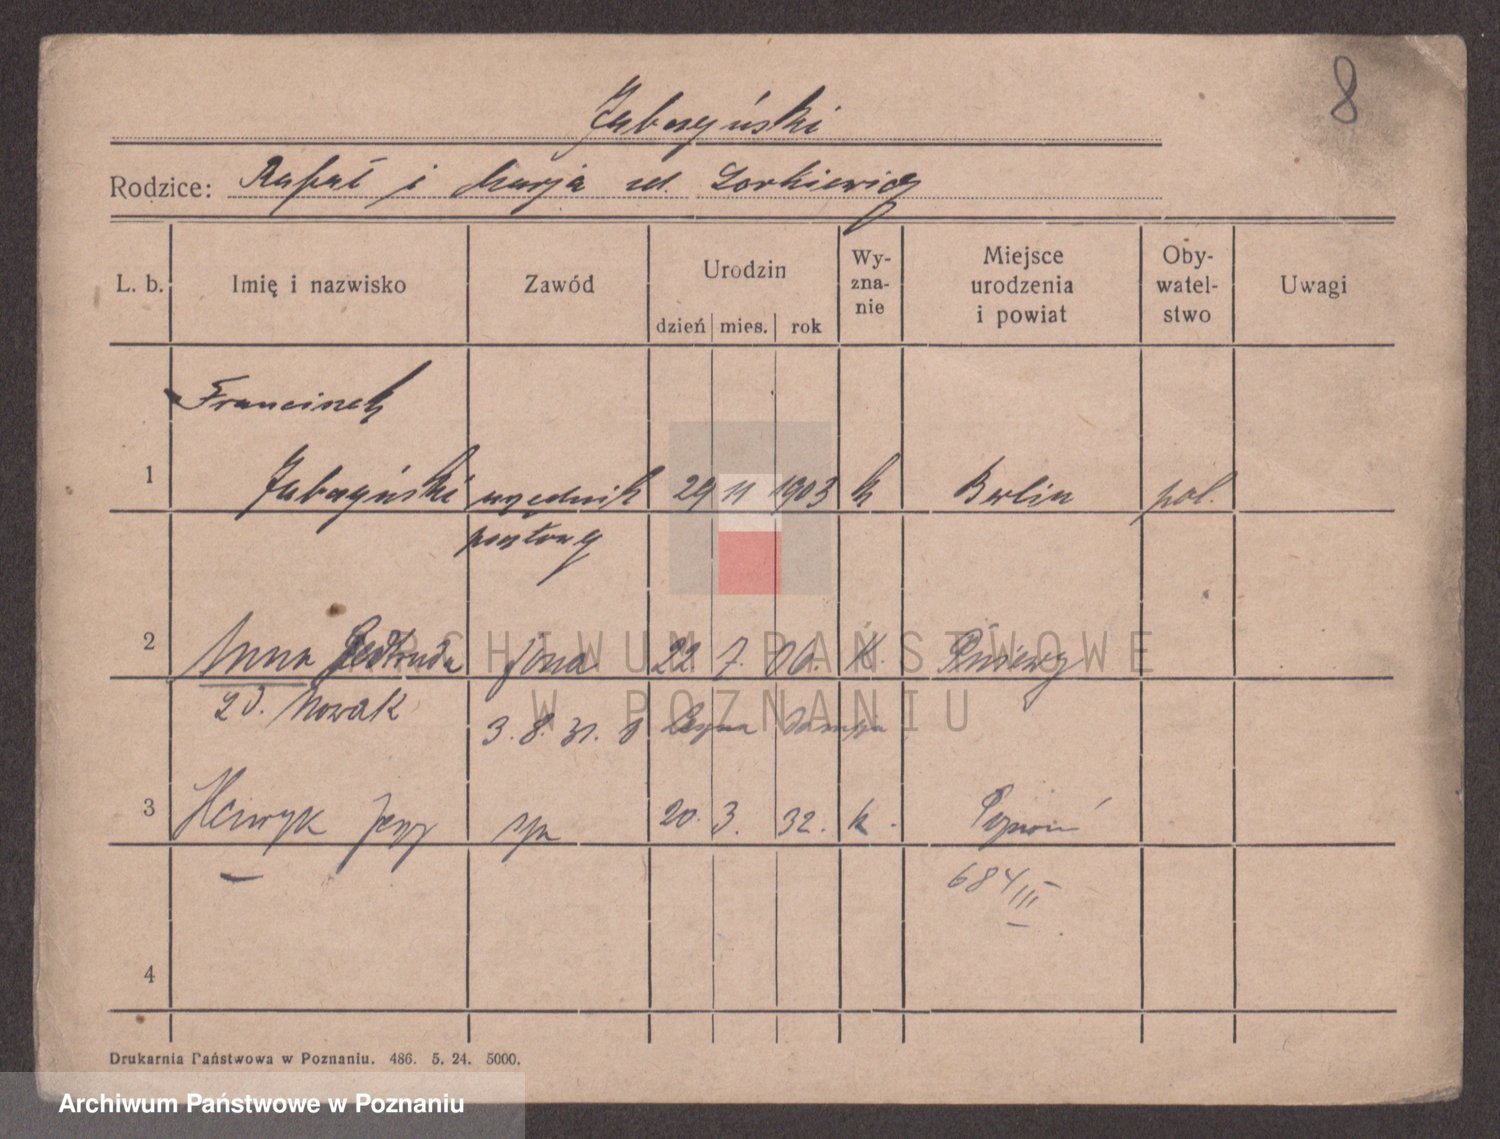 8
Rodzice: Rafał i Marja ud.
L. b. Imię i nazwisko Zawód Urodzin Wy-zna-nie Miejsce urodzenia i powiat Oby-watel-stwo Uwagi
dzień mies. rok
Franciszek
1 urzędnik 29 11 1903 k Berlin pol.
pocztowy
2 Anna Gertruda żona 22 7. 06. K. Pniewy
ARCHIWUM PAŃSTWOWE
W POZNANIU
zd. Nowak
3. 8. 31.
3 Henryk Jerzy syn 20. 3. 32. k. Poznań
684/III
4
Drukarnia Państwowa w Poznaniu. 486. 5. 24. 5000.
Archiwum Państwowe w Poznaniu